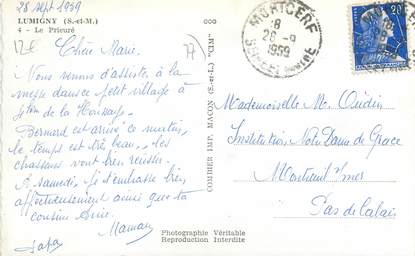 28 sept 1959
LUMIGNY (S.-et-M.)
4 - Le Prieuré
12€
77
Chère Marie.
Nous venons d'assister à la
messe dans ce petit village à
de la Houssaye.
Bernard est arrivé ce matin,
le temps est très beau, les
chasseurs vont bien réussir.
A samedi, je t'embrasse bien
affectueusement ainsi que ta
cousine Anne.
Maman
Papa
COMBIER IMP. MACON (S.-et-L.) "CIM"
MORTCERF
18
28 -9
1959
SEINE ET MARNE
20
Mademoiselle M. Oudin
Institution Notre Dame de Grace
Montreuil s/mer
Pas de Calais
Photographie Véritable
Reproduction Interdite